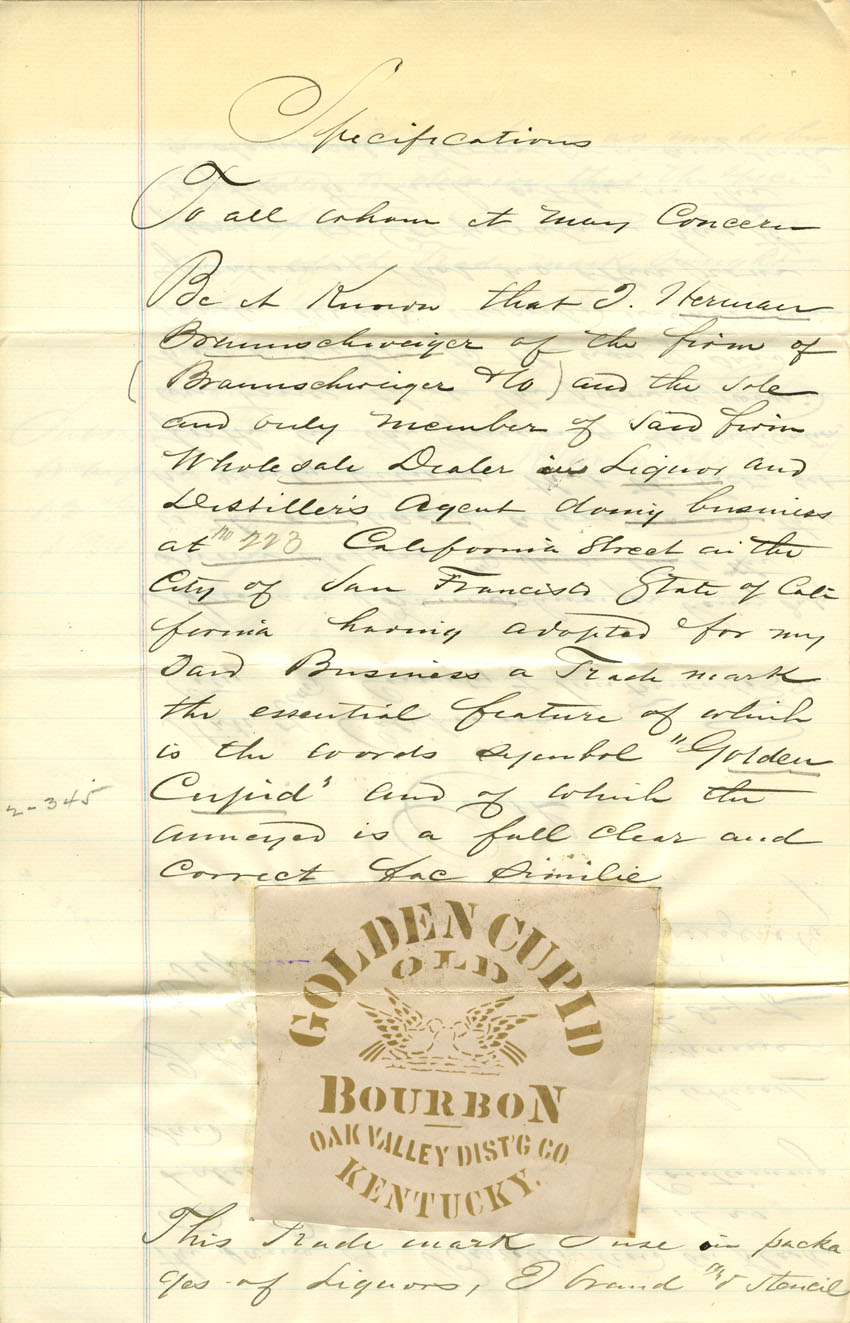 Specifications
To all whom it may Concern
Be it Known that I. Herman
Braunschweiger of the firm of
(Braunschweiger & Co) and the sole
and only member of said firm
Wholesale Dealer in Liquor and
Distiller's Agent doing business
at No 223 California Street in the
City of San Francisco State of Cali
fornia having adopted for my
said Business a Trade mark
the essential feature of which
is the words symbol "Golden
Cupid" and of which the
2-345
annexed is a full clear and
correct fac similie
GOLDEN CUPID
OLD
BOURBON
OAK VALLEY DIST'G CO
KENTUCKY.
This Trade mark I use on packa
ges of Liquors, I brand & stencil